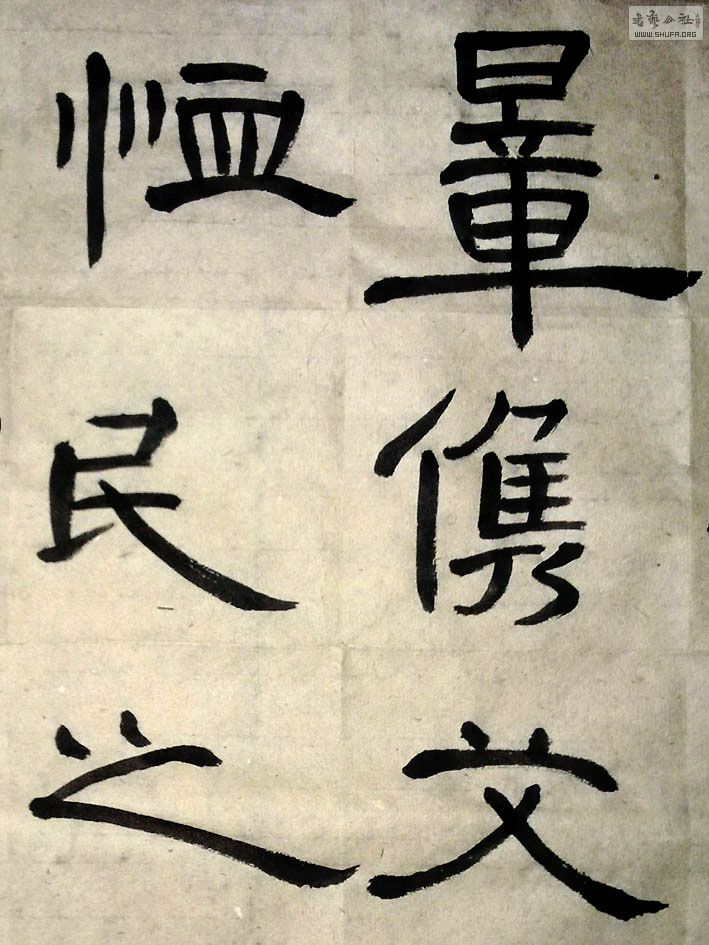 量儁艾
恤民之
书艺公社
WWW.SHUFA.ORG